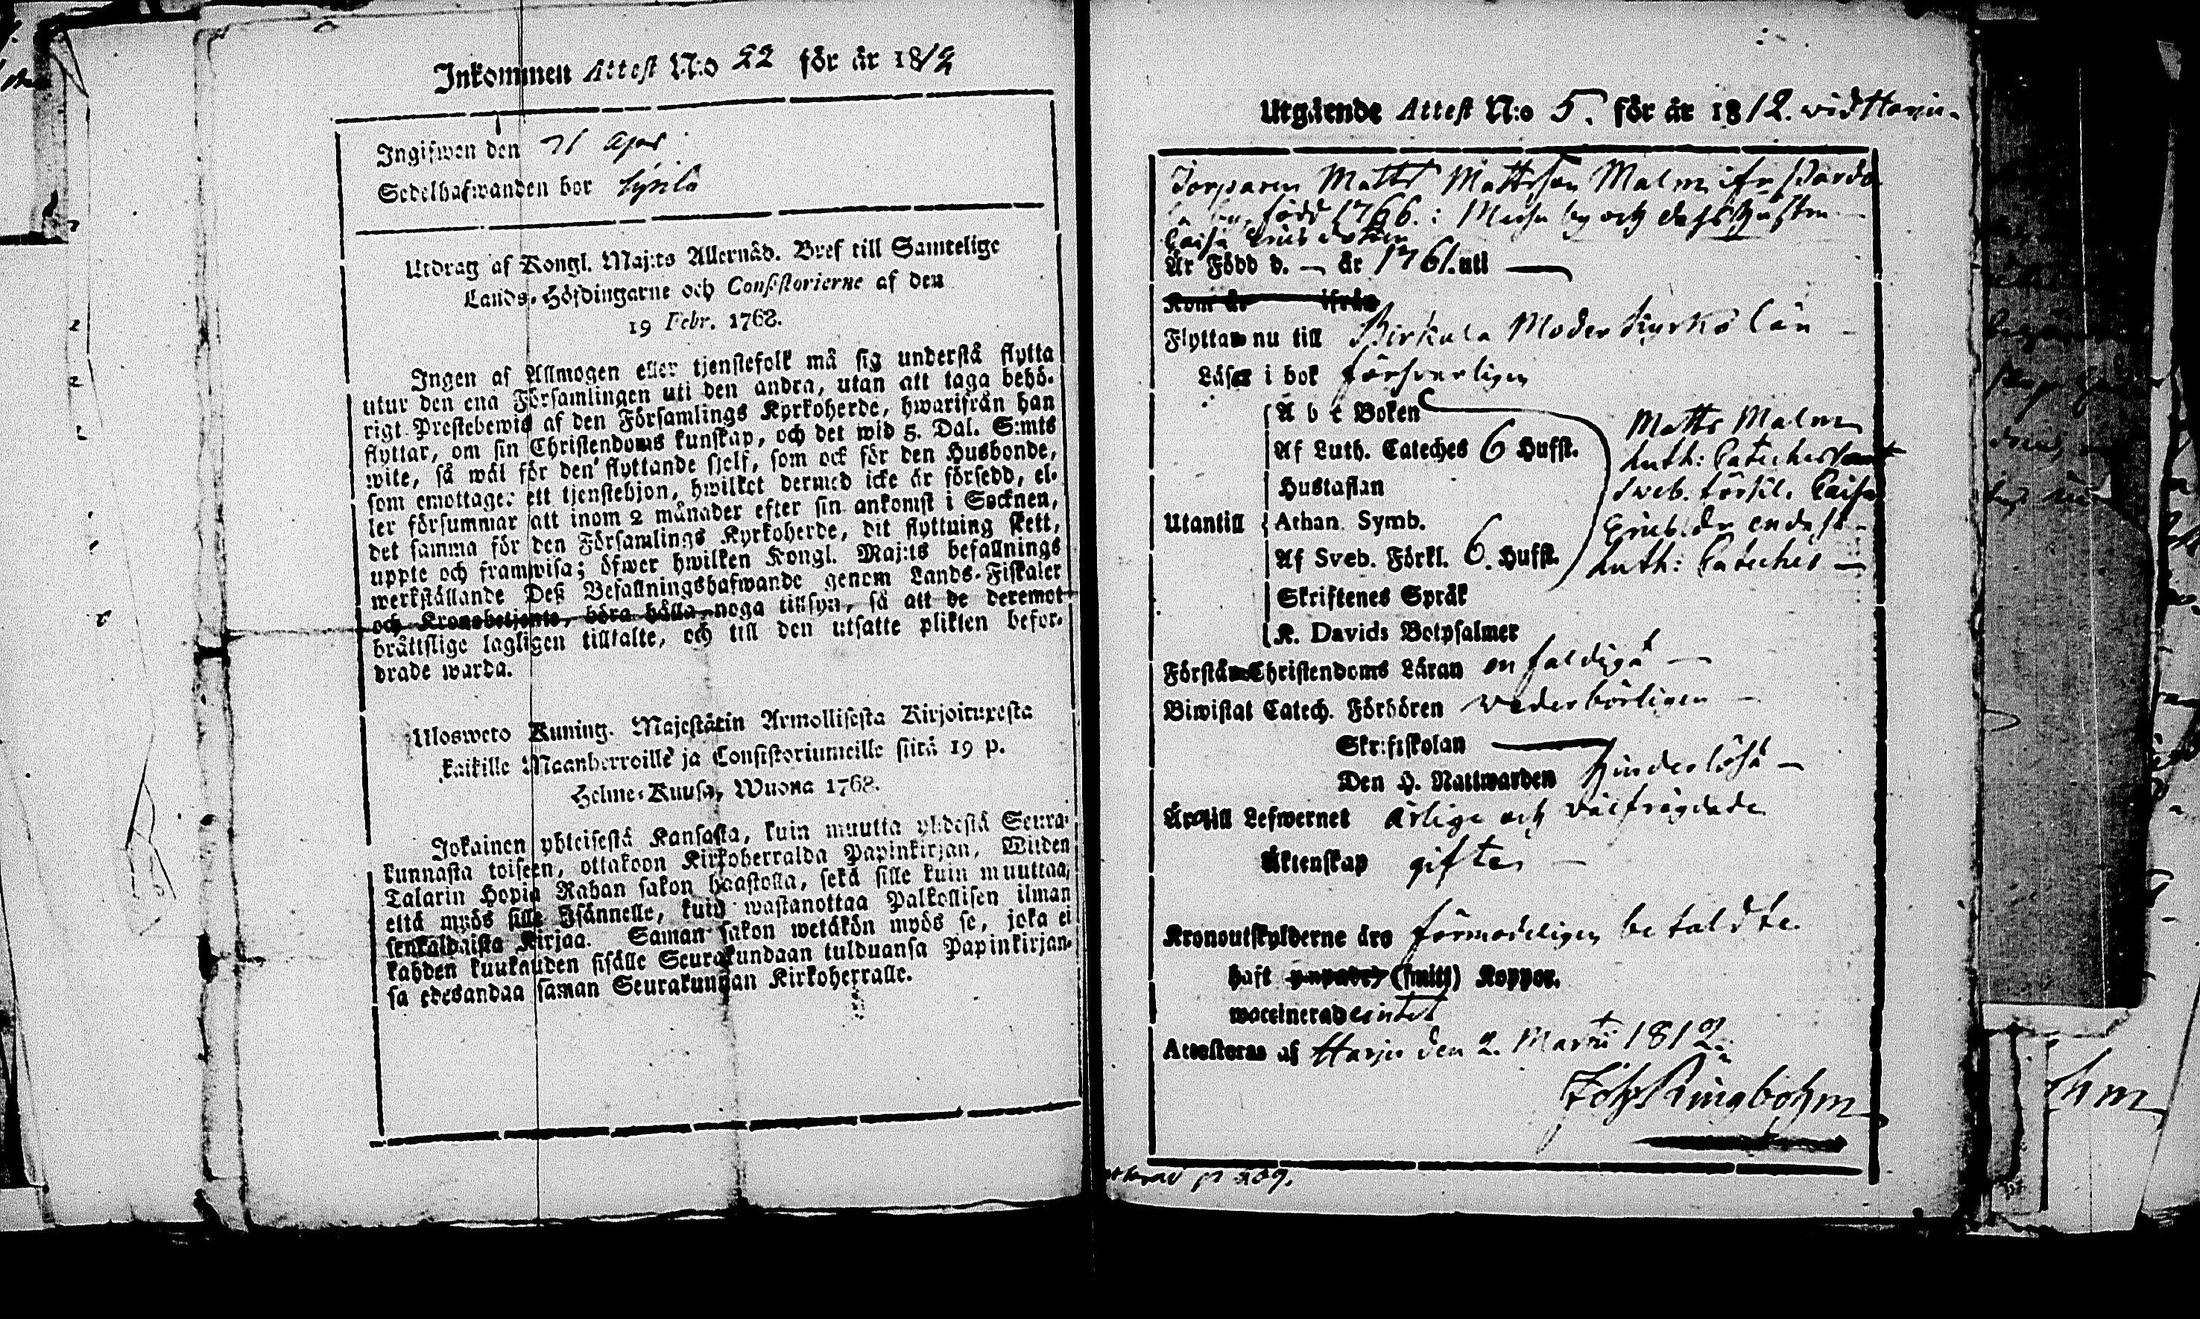 Inkommen Attest N:o 22 för år 1812
Ingifwen den 21 Apr
Sedelhafwanden bor
Utdrag af Kongl. Maj:ts Allernåd. Bref till Samtelige
Lands-Höfdingarne och Consistorierne af den
19 Febr. 1768.
Ingen af Allmogen eller tjenstefolk må sig understå flytta
utur den ena Församlingen uti den andra, utan att taga behö-
rigt Prestebewis af den Församlings Kyrkoherde, hwarifrån han
flyttar, om sin Christendoms kunskap, och det wid 5. Dal. S:mts
wite, så wäl för den flyttande sjelf, som ock för den Husbonde,
som emottager ett tjenstehjon, hwilket dermed icke är försedd, el-
ler försummar att inom 2 månader efter sin ankomst i Socknen,
det samma för den Församlings Kyrkoherde, dit flyttning skett,
uppte och framwisa; öfwer hwilken Kongl. Maj:ts befallnings
werkställande Deß Befallningshafwande genom Lands-Fiskaler
och Kronobetjente, böra hålla noga tillsyn, så att de deremot
bråttslige lagligen tilltalte, och till den utsatte plikten befor-
drade warda.
Ulosweto Kuning. Majestätin Armollisesta Kirjoituxesta
kaikille Maanherroille ja Consistoriumeille siitä 19 p.
Helme-Kuusa, Wuona 1768.
Jokainen yhteisestä Kansasta, kuin muutta yhdestä Seura-
kunnasta toiseen, ottakoon Kirkoherralda Papinkirjan, Wiiden
Talarin Hopia Rahan sakon haastolla, sekä sille kuin muuttaa,
että myös sille Isännelle, kuin wastanottaa Palkollisen ilman
senkaldaista Kirjaa. Saman sakon wetäkön myös se, joka ei
kahden kuukauden sisälle Seurakundaan tulduansa Papinkirjan-
sa edesandaa saman Seurakunnan Kirkoherralle.
Utgående Attest N:o 5. för år 1812. wid Harju.
Torparen Matts Mattsson Malm ifr
född 1766. och dess hustru
Caisa
Är Född d. — år 1761. uti —
Kom år ifrån
Flyttar nu till Birkala Moder Kyrko
Läser i bok försvarligen
A b c Boken
Af Luth. Cateches 6 Hufst.
Hustaflan
Utantill Athan. Symb.
Af Sveb. Förkl. 6. Hufst.
Skriftenes Språk
K. Davids Botpsalmer
Matts Malm
Luth: Cateches samt
Sveb. förkl. Caisa
endast
Luth: Cateches —
Förstår Christendoms Läran enfaldigt —
Biwistat Catech. Förhören vederbörligen —
Skriftskolan —
Den H. Nattwarden hinderlösa —
Äro till Lefwernet ärlige och välfrägdade
Äktenskap gifte —
Kronoutskylderne äro förmodeligen betaldte.
haft (smitt) Koppor.
waccinerade intet
Attesteras af Harju den 2. Martii 1812.
Joh Ringbohm
p 209.